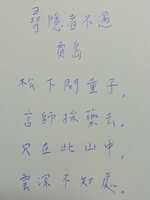 尋隱者不遇
賈島
松下問童子,
言師採藥去。
只在此山中,
雲深不知處。